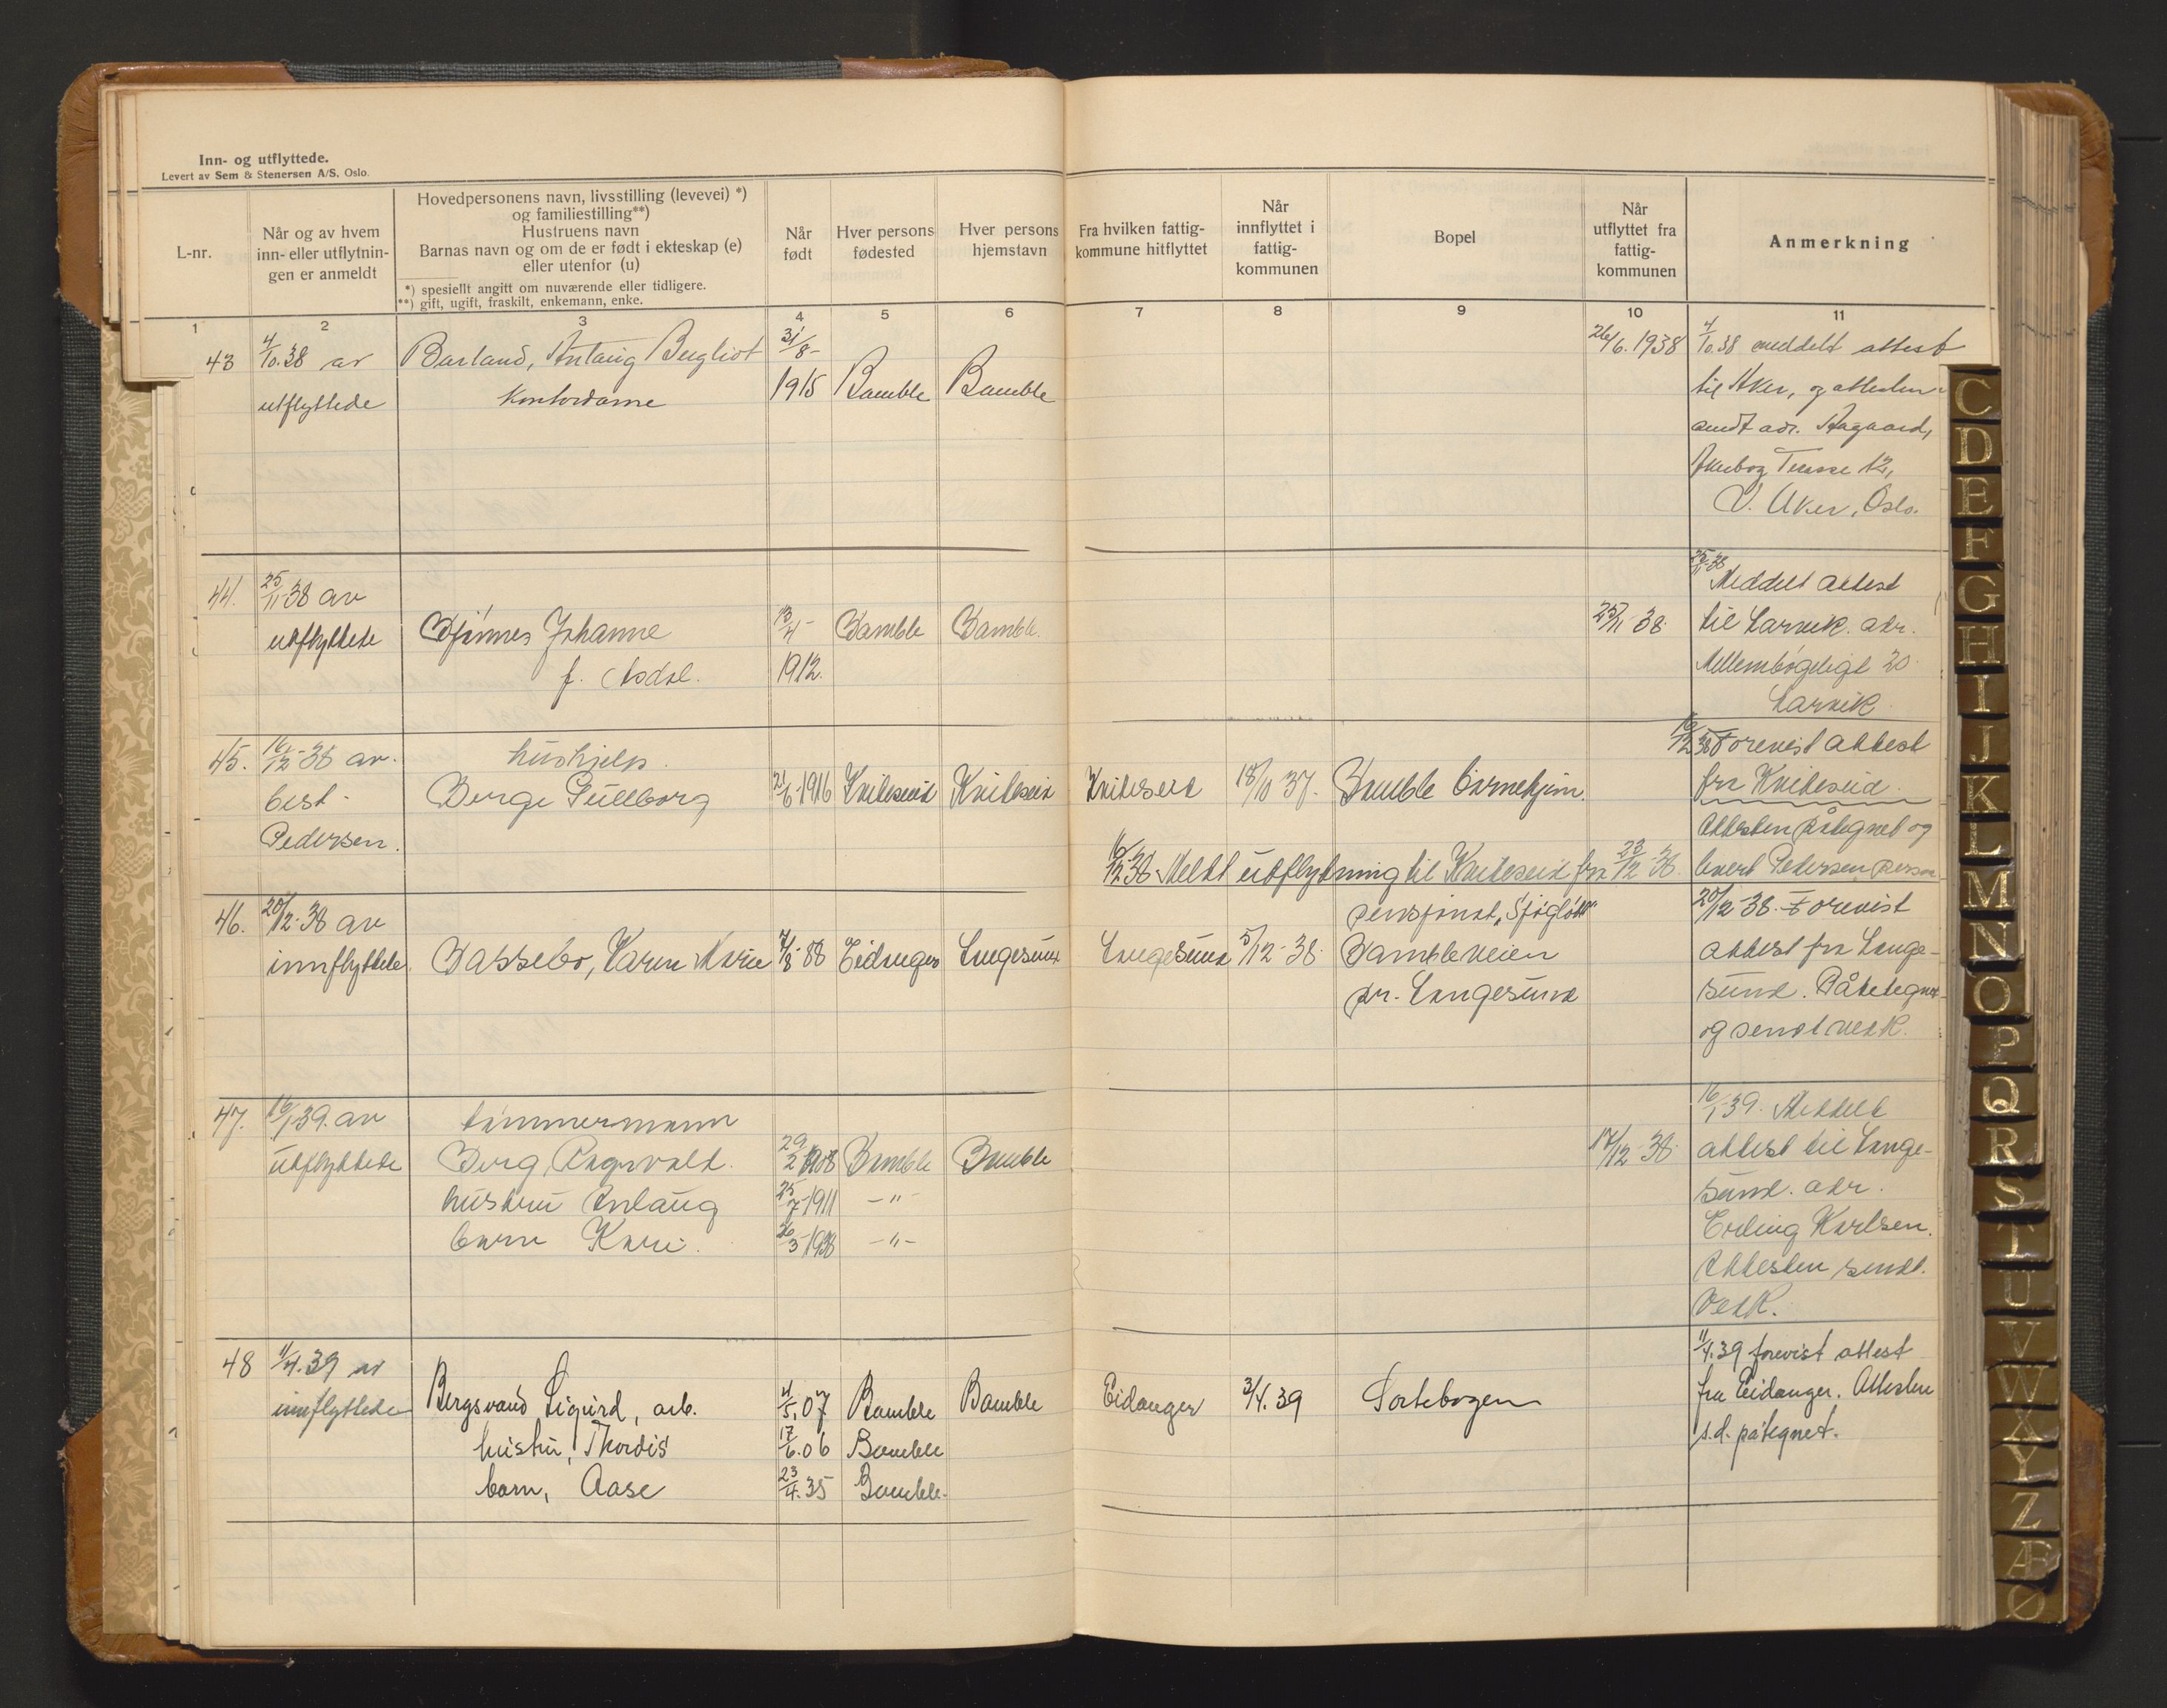 Inn- og utflyttede.
Levert av Sem & Stenersen A/S. Oslo.
L-nr.
Når og av hvem
inn- eller utflytnin-
gen er anmeldt
Hovedpersonens navn, livsstilling (levevei) *)
og familiestilling**)
Hustruens navn
Barnas navn og om de er født i ekteskap (e)
eller utenfor (u)
*) spesiellt angitt om nuværende eller tidligere.
**) gift, ugift, fraskilt, enkemann, enke.
Når
født
Hver persons
fødested
Hver persons
hjemstavn
Fra hvilken fattig-
kommune hitflyttet
Når
innflyttet i
fattig-
kommunen
Bopel
Når
utflyttet fra
fattig-
kommunen
Anmerkning
1 2 3 4 5 6 7 8 9 10 11
43 4/10.38 av Barland, Anlaug Bergliot 31/8- 26/6.1938 4/10.38 meddelt attest
utflyttede Kontordame 1915 Bamble Bamble til Aker, og attesten
sendt adr. Aagaard,
Terasse 12,
V. Aker, Oslo.
44. 25/11-38 av 25/11-38 Meddelt attest
utflyttede Johanne 13/4- Bamble Bamble. 25/11-38 til Larvik. adr.
f. 1912. 20.
Larvik.
45. 16/12-38 av. hushjelp. 16/12 38 Forevist attest
best. Berge Gullborg 21/6-1916 Kviteseid Kviteseid Kviteseid 18/10 37. Bamble Barnehjem. fra Kviteseid.
Pedersen. Attesten påtegnet og
16/12-38 Meldt utflytning til Kviteseid fra 23/12-38. levert Pedersen person
46. 20/12-38 av pensjonat, "Sjøgløtt" 20/12-38. Forevist
innflyttede. Bassebo, Karen Marie 7/8-88 Eidanger Langesund Langesund 5/12-38. Bambleveien attest fra Lange-
pr. Langesund sund. Påtegnet
og sendt vedk.
47. 16/1 39. av tømmermann 16/1 39. Meddelt
utflyttede Berg, Ragnvald. 29/2 1908 Bamble Bamble 17/12-38. attest til Lange-
hustru Anlaug 25/7-1911 -"- sund. adr.
barn Kari. 26/3-1938 -"- Erling Karlsen.
Attesten sendt.
Vedk.
48 11/4.39 av 11/4.39 forevist attest
innflyttede Bergsvand Sigurd, arb. 4/5.07 Bamble Bamble Eidanger 3/4.39 Sortebogen fra Eidanger. Attesten
hustru, Thordis 17/6.06 Bamble s.d. påtegnet.
barn, Aase 23/4.35 Bamble.
C
D
E
F
G
H
I
J
K
L
M
N
O
P
Q
R
S
T
U
V
W
X
Y
Z
Æ
Ø